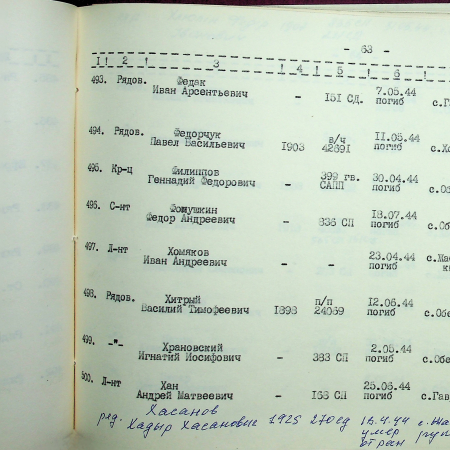 - 63 -
1 ! 2 ! 3 ! 4 ! 5 ! 6 !
493. Рядов. Федак
Иван Арсентьевич - 151 СД. 7.05.44 погиб с.Га
494. Рядов. Федорчук
Павел Васильевич 1903 в/ч 42691 11.05.44 погиб с.Хо
495. Кр-ц Филиппов
Геннадий Федорович - 399 гв. САПП 30.04.44 погиб с.Оз
496. С-нт Фомушкин
Федор Андреевич - 836 СП 18.07.44 погиб с.Обе
497. Л-нт Хомяков
Иван Андреевич - - 23.04.44 погиб с.Жаб
498. Рядов. Хитрый
Василий Тимофеевич 1898 п/п 24069 12.06.44 погиб с.Обе
499. -"- Храновский
Игнатий Иосифович - 383 СП 2.05.44 погиб с.Обе
500. Л-нт Хан
Андрей Матвеевич - 168 СП 25.06.44 погиб с.Гав
ряд. Хасанов
Хадыр Хасанович 1925 270 сд 16.4.44 с.Жа
умер